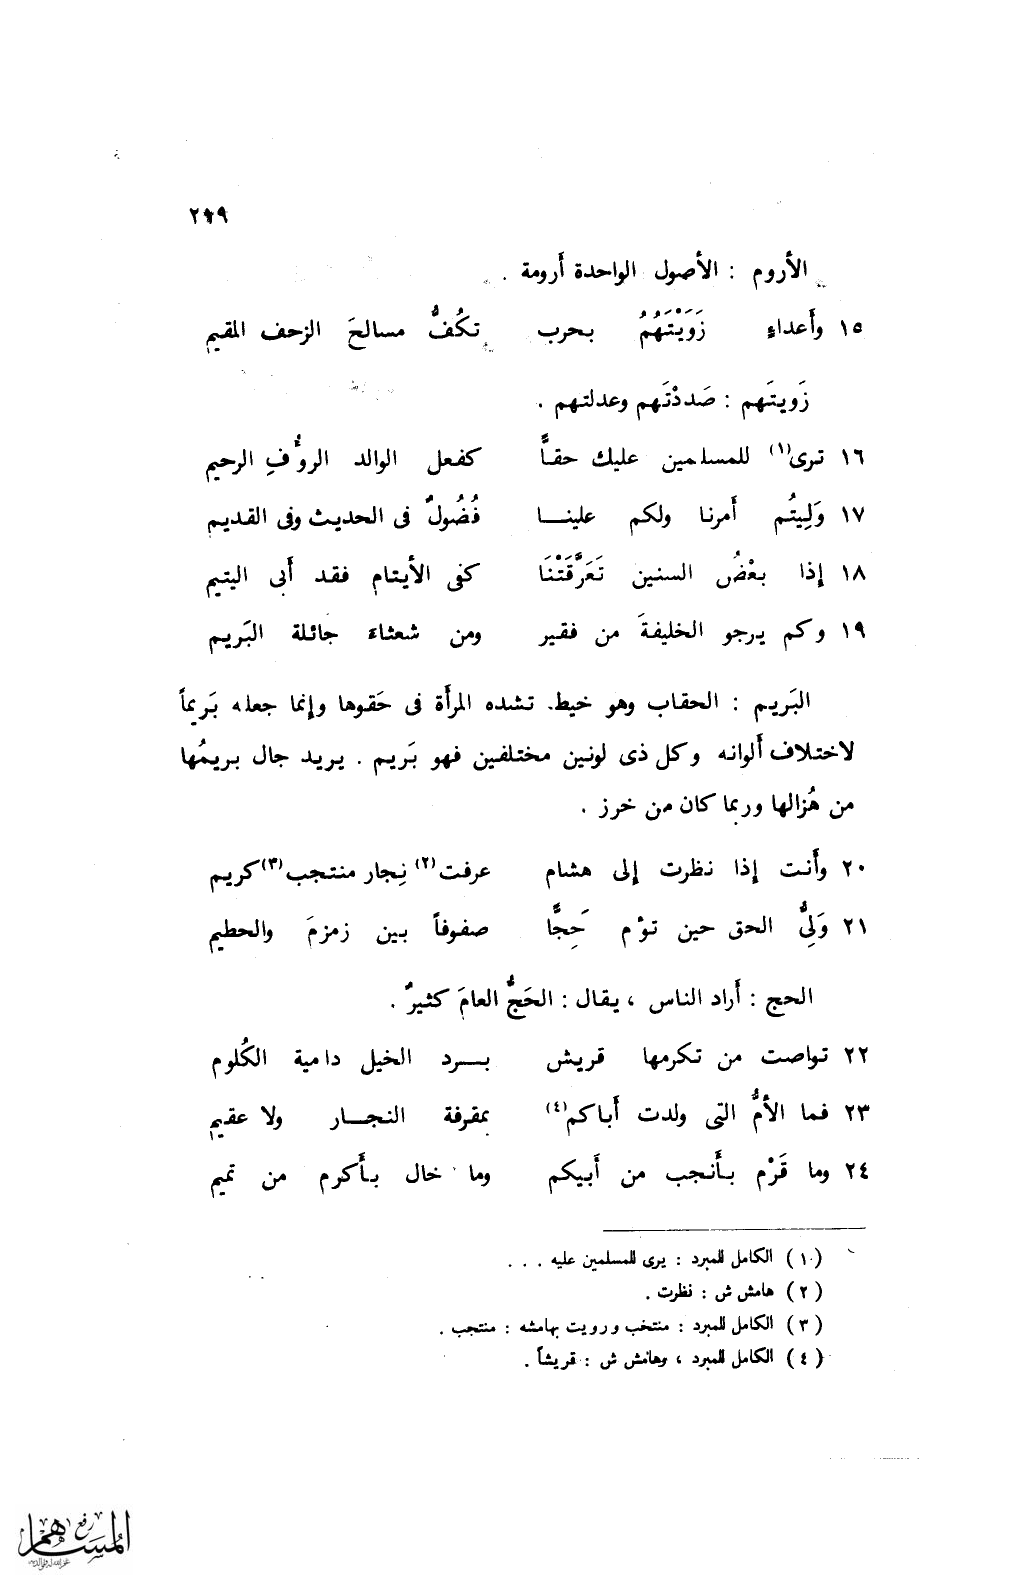 ٢١٩
الأروم : الأصول الواحدة أرومة .
١٥ وأَعداءٍ زَوَيْتَهُمُ بحرب تكُفُّ مسالحَ الزحف المقيم
زَويتَهم : صَددْتَهم وعدلتهم .
١٦ ترى(١) للمسلمين عليك حقًّا كفعل الوالد الروُفِ الرحيم
١٧ وَلِيتُم أَمرنا ولكم علينـــا فُضُولٌ فى الحديث وفى القديم
١٨ إذا بعْضُ السنين تَعَرَّقَتْنَا كفى الأيتام فقد أَبى اليتيم
١٩ وكم يرجو الخليفةَ من فقير ومن شعثاءَ جائلة البَريم
البَريم : الحقاب وهو خيط. تشده المرأَة فى حَقوها وإنما جعله بَريماً
لاختلاف أَلوانه وكل ذى لونين مختلفين فهو بَريم . يريد جال بريمُها
من هُزالها وربما كان من خرز .
٢٠ وأَنت إذا نظرت إلى هشام عرفت(٢) نِجار منتجب(٣) كريم
٢١ وَلِىُّ الحق حين تؤم حَِجًّا صفوفاً بين زمزمَ والحطيم
الحج : أَراد الناس ، يقال : الحَجُّ العامَ كثيرٌ .
٢٢ تواصت من تكرمها قريش بـــرد الخيل دامية الكُلوم
٢٣ فما الأُمُّ التى ولدت أَباكم(٤) بمقرفة النجـــار ولا عقيم
٢٤ وما قَرْم بأَنجب من أَبيكم وما خال بأَكرم من تميم
(١) الكامل للمبرد : يرى للمسلمين عليه . . .
(٢) هامش ش : نظرت .
(٣) الكامل للمبرد : منتخب ورويت بهامشه : منتجب .
(٤) الكامل للمبرد ، وهامش ش : قريشاً .
رفع
المساهم